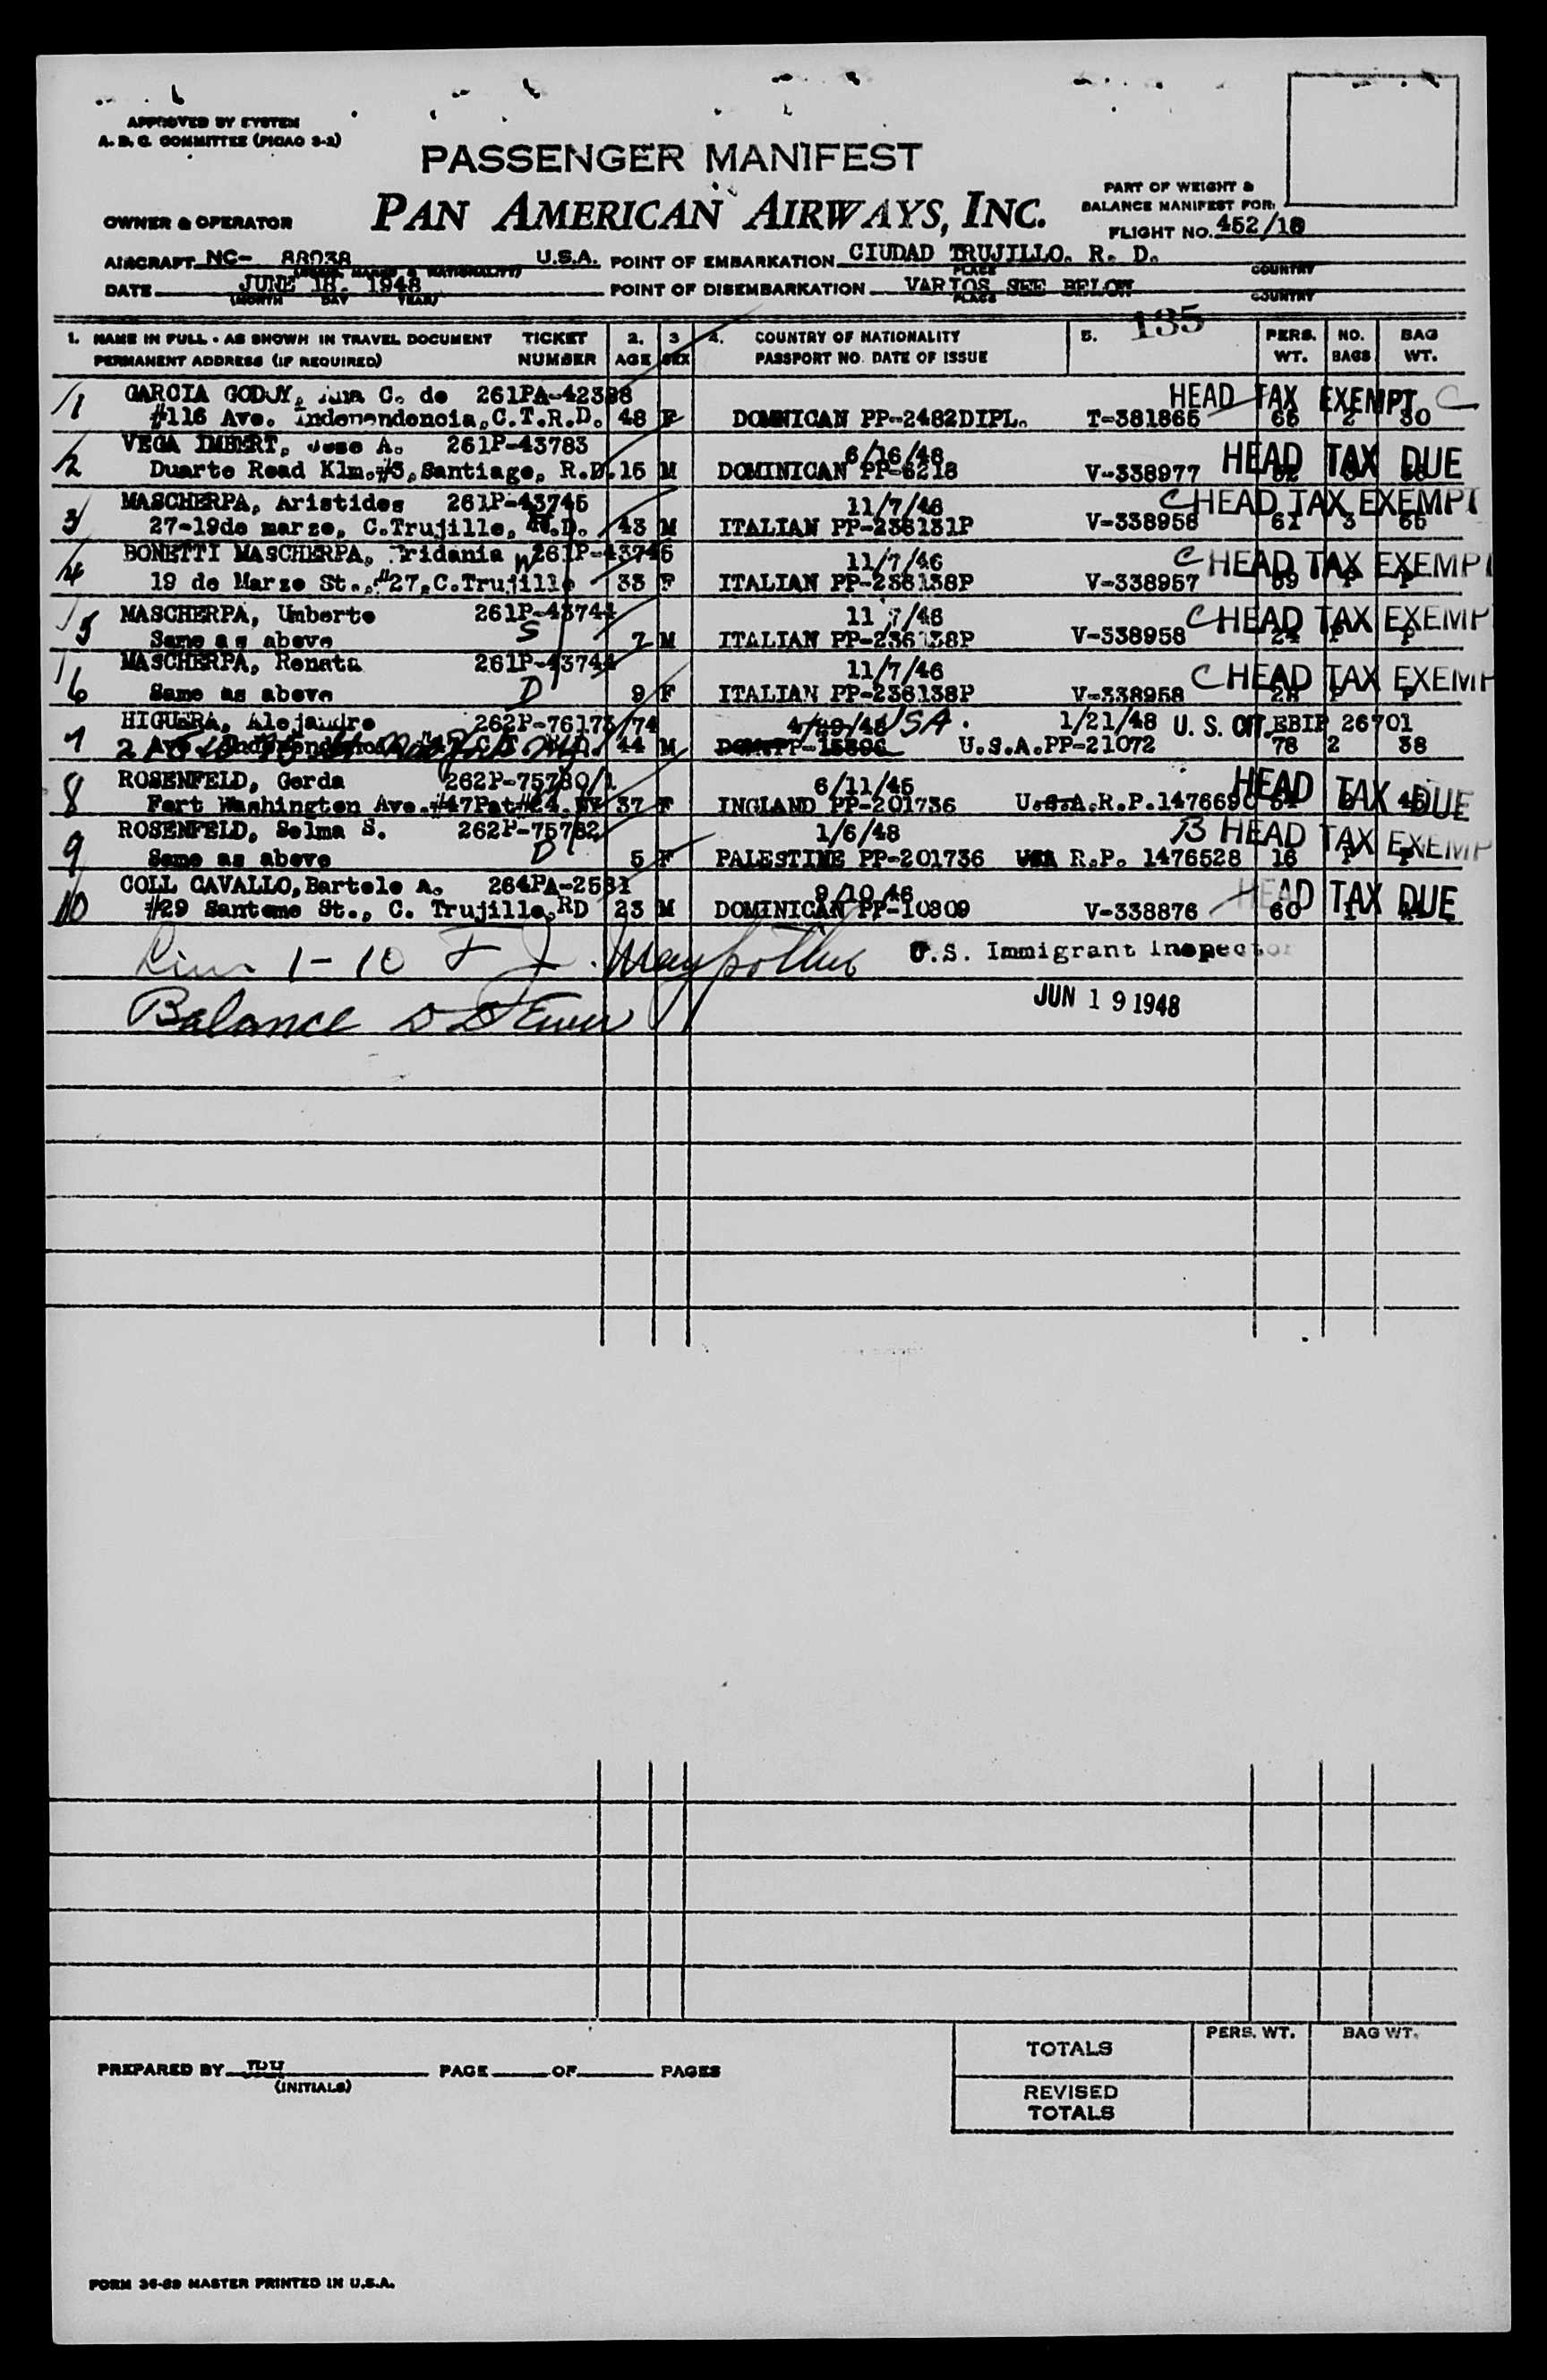 APPROVED BY SYSTEM
A. D. C. COMMITTEE (PICAO 3-2)
PASSENGER MANIFEST
PART OF WEIGHT &
BALANCE MANIFEST FOR:
OWNER & OPERATOR PAN AMERICAN AIRWAYS, INC.
FLIGHT NO. 452/18
AIRCRAFT NC- 88038 U.S.A. POINT OF EMBARKATION CIUDAD TRUJILLO. R. D.
PLACE COUNTRY
DATE JUNE 18. 1948 POINT OF DISEMBARKATION VARIOS SEE BELOW
(MONTH DAY YEAR) PLACE COUNTRY
135
1. NAME IN FULL - AS SHOWN IN TRAVEL DOCUMENT TICKET 2. 3 4. COUNTRY OF NATIONALITY 5. PERS. NO. BAG
PERMANENT ADDRESS (IF REQUIRED) NUMBER AGE SEX PASSPORT NO. DATE OF ISSUE WT. BAGS WT.
1 GARCIA GODOY, C. de 261PA-42388 HEAD TAX EXEMPT C
#116 Ave. Independencia, C.T.R.D. 48 F DOMNICAN PP-2482DIPL. T-381865 66 2 30
2 VEGA IMBERT, Jose A. 261P-43783 6/16/48 HEAD TAX DUE
Duarte Road Klm.#5, Santiago, R.D. 15 M DOMINICAN PP-6218 V-338977
3 MASCHERPA, Aristides 261P-43745 11/7/46 C HEAD TAX EXEMPT
27-19de marzo, C.Trujillo, R.D. 43 M ITALIAN PP-236131P V-338956 61 3 65
4 BONETTI MASCHERPA, Iridania W 261P-43745 11/7/46 C HEAD TAX EXEMPT
19 de Marzo St., #27, C.Trujillo 33 F ITALIAN PP-236138P V-338957 59 P P
5 MASCHERPA, Umberto 261P-43744 11/7/46 C HEAD TAX EXEMP
Same as above S 7 M ITALIAN PP-236138P V-338958 24 P P
6 MASCHERPA, Renata 261P-43744 11/7/46 C HEAD TAX EXEMP
Same as above D 9 F ITALIAN PP-236138P V-338958 28 P P
7 HIGUERA, Alejandro 262P-76173/74 4/29/48 USA. 1/21/48 U. S. CIT. EBIP 26701
44 M DOM.PP-15896 U.S.A.PP-21072 78 2 38
8 ROSENFELD, Gerda 262P-75780/1 6/11/45 HEAD TAX DUE
Fort Washington Ave.#47Pat#24. NY 37 F INGLAND PP-201736 U.S.A.R.P.1476690
9 ROSENFELD, Selma S. 262P-75782 1/6/48 B HEAD TAX EXEMP
Same as above D 5 F PALESTINE PP-201736 USA R.P. 1476528 16 P P
10 COLL CAVALLO, Bartolo A. 264PA-2581 9/10/46 HEAD TAX DUE
#29 Santome St., C. Trujillo, RD 23 M DOMINICAN PP-10809 V-338876 60
1-10 U.S. Immigrant Inspector
Balance
JUN 19 1948
TOTALS PERS. WT. BAG WT.
PREPARED BY (INITIALS) PAGE OF PAGES
REVISED
TOTALS
FORM 36-89 MASTER PRINTED IN U.S.A.